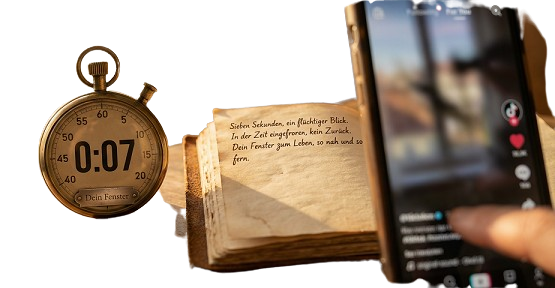 60
55
5
50
10
45
15
40
20
0:07
Dein Fenster
Sieben Sekunden, ein flüchtiger Blick.
In der Zeit eingefroren, kein Zurück.
Dein Fenster zum Leben, so nah und so
fern.
For You